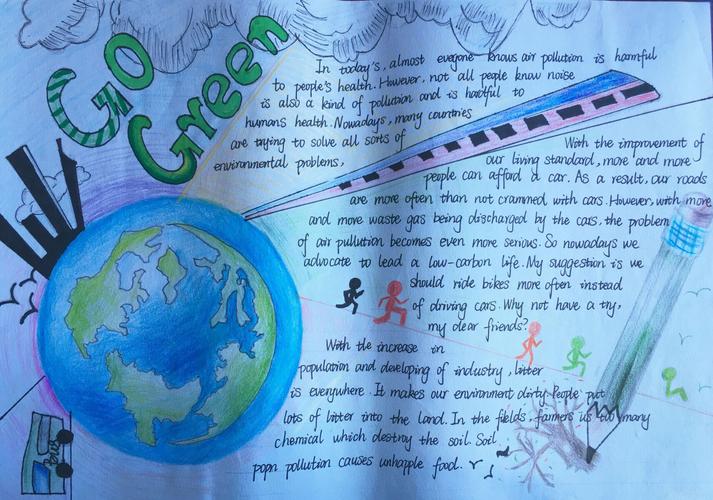 Go
Green
In today's, almost everyone knows air pollution is harmful
to people's health. However, not all people know noise
is also a kind of pollution and is hartful to
humans health. Nowadays, many countries
are trying to solve all sorts of
environmental problems,
With the improvement of
our living standard, more and more
people can afford a car. As a result, our roads
are more often than not crammed with cars. However, with more
and more waste gas being discharged by the cars, the problem
of air pullution becomes even more serious. So nowadays we
advocate to lead a low-carbon life. My suggestion is we
should ride bikes more often instead
of driving cars. Why not have a try,
my dear friends?
With the increase in
population and developing of industry, litter
is everywhere. It makes our environment dirty. People put
lots of litter into the land. In the fields, farmers us too many
chemical which destroy the soil. Soil
popn pollution causes unhapple food.
BUS